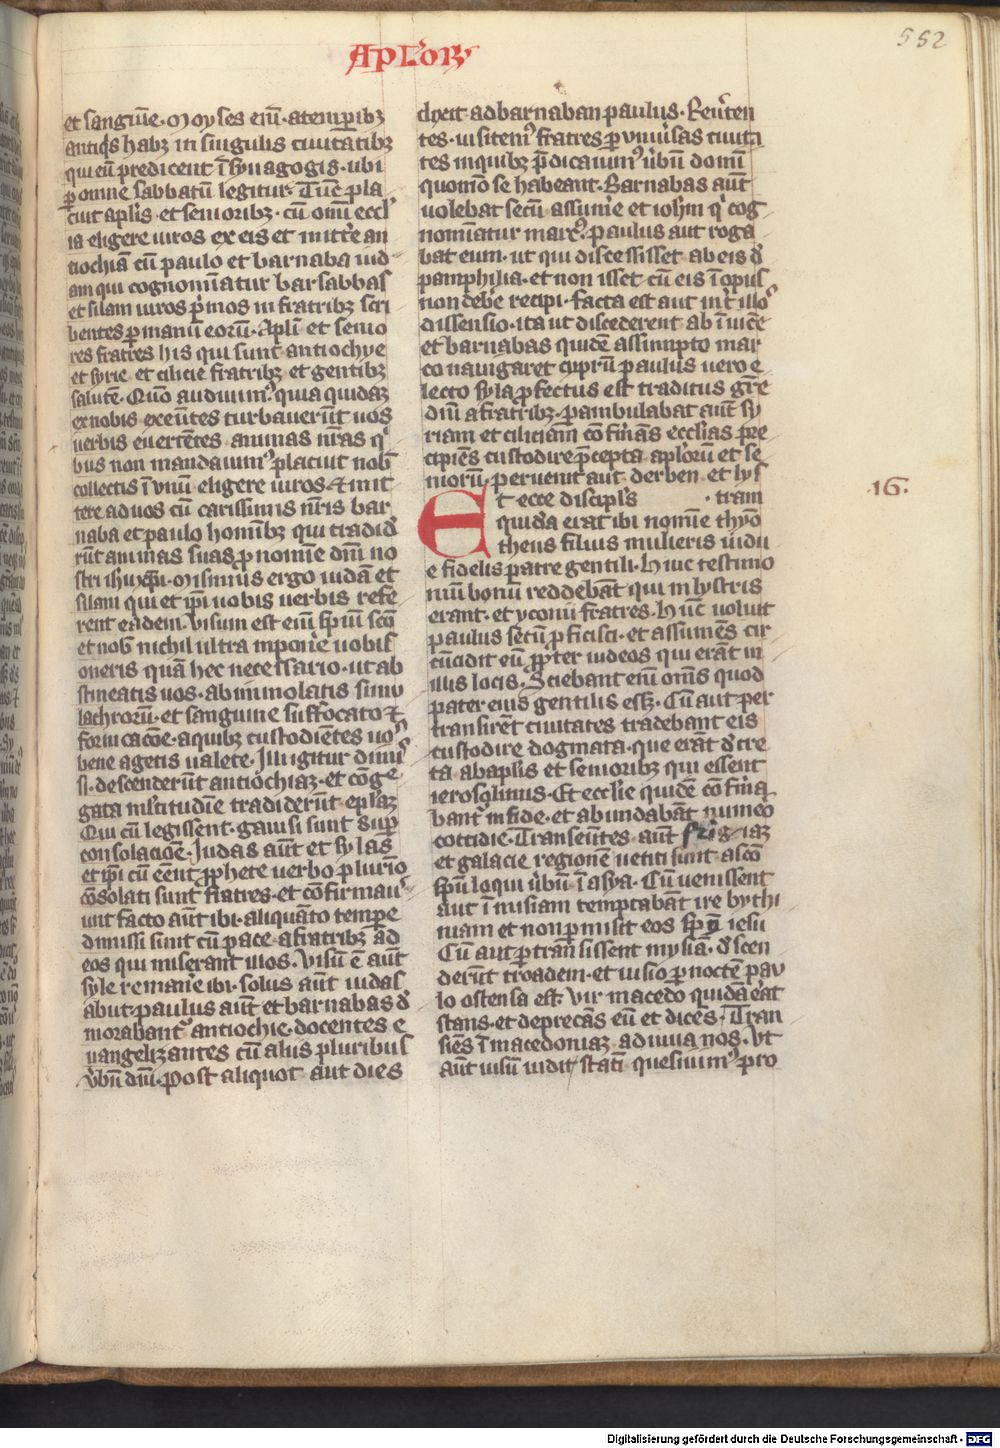 552
Apl'oꝝ
et sanguīe. Moyses eīm. atempībꝫ
antiqs habꝫ in singulis ciuitatibꝫ
qui eū predicent ī synagogis. ubi
ꝑ omne sabbatū legitur. Tūc pla
cuit aplīs. et senioribꝫ. cū omī eccl'
ia eligere uiros ex eis et mitt'e an
tiochiā cū paulo et barnaba iud
am qui cognomīatur barsabbas
et silam uiros p'mos in fratribꝫ scri
bentes ꝑ manū eorū. Aplī et senio
res fratres his qui sunt antiochye
et syrie et cilicie fratribꝫ et gentibꝫ
salutē. Qūo audiuim' quia quidaꝫ
ex nobis exeūtes turbauerūt uos
uerbis euertētes animas ur̄as q'
bus non mandauim' placuit nob'
collectis ī vnū eligere uiros ⁊ mit
tere ad uos cū carissimis nr̄is bar
naba et paulo homībꝫ qui tradid'
rūt animas suas ꝓ nomīe dn̄i no
stri ihū xp̄i. Misimus ergo iudā et
silam qui et ip̄i uobis uerbis refe
rent eadem. Visum est eīm sp̄ui scō
et nob' nichil ultra inpon'e uobis
oneris quā hec necessario. ut ab
stineatis uos. ab immolatis simu
lachrorū. et sanguine suffocato ⁊
fornicacōe. a quibꝫ custodiētes uo'
bene agetis ualete. Illi igitur dimi'
si. descenderūt antiochiaꝫ. et cōge
gata multitudīe tradiderūt epl'aꝫ
Qui cū legissent. gauisi sunt sup
consolacioē. Judas aūt et sylas
et ip̄i cū eēnt ꝓphete uerbo plurio
cōsolati sunt fratres. et cōfirmau'
unt facto aūt ibi. aliquāto tempe
dimissi sunt cū pace a fratribꝫ ad
eos qui miserant illos. Visū ē aūt
syle remanē ibi. solus aūt iudas
abiit. paulus aūt et barnabas d'
morabant' antiochie. docentes e
uangelizantes cū aliis pluribus
v'bū dn̄i. Post aliquot aut dies
dixit ad barnaban paulus. Reu'ten
tes. uisitem' fratres ꝑ vniu'sas ciuita
tes in quibꝫ p̄dicauim' u'bū domī
quomō se habeant. Barnabas aūt
uolebat secū assum'e et ioh'm q' cog
nomīatur marc'. paulus aut roga
bat eum. ut qui discessisset ab eis d'
pamphilia. et non isset cū eis ī opus
non deb'e recipi. facta est aut int' illo'
dissensio. ita ut discederent ab īuicē
et barnabas quidē assumpto mar
co nauigaret cyprū paulus uero e
lecto syla ꝓfectus est traditus gr̄e
dn̄i a fratribꝫ. perambulabat aūt sy
riam et ciliciam cōfirmās ecclias pre
cipiēs custodire p̄cepta aplōrū et se
niorū. peruenit aut derben et lys
Et ecce discipl's . tram
quidā erat ibi nomīe thyō
theus filius mulieris uidu
e fidelis patre gentili. Huic testimo
niū bonū reddebāt qui in lystris
erant. et yconiū fratres. Hūc uoluit
paulus secū ꝓficisci. et assumēs cir
cūcidit eū ꝓpter iudeos qui erāt in
illis locis. Sciebant enī om̄s quod
pater eius gentilis eēt. Cū aut per
transirēt ciuitates tradebant eis
custodire dogmata. que erāt d'cre
ta ab aplīs et senioribꝫ qui essent
ierosolimis. Et ecclie quidē cōfirma
bant' in fide. et abundabāt numeō
cottidie. Transeūtes aūt frigiaꝫ
et galacie regionē uetiti sunt a scō
sp̄u loqui u'bū ī asya. Cū uenissent
aut ī misiam temptabāt ire bythi
niam et non ꝑmisit eos sp̄s iesu
Cū aut ꝑtransissent mysiā. d'scen
derūt troadem. et uisio ꝑ noctē pau
lo ostensa est. Vir macedo quidā eāt
stans. et deprecās eū et dicēs. Tran
siēs ī macedoniaꝫ adiuua nos. Vt
aūt uisū uidit statī quesiuim' pro
.16.
Digitalisierung gefördert durch die Deutsche Forschungsgemeinschaft - DFG